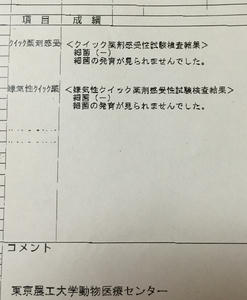 項目 成績
クイック薬剤感受 <クイック薬剤感受性試験検査結果>
細菌(－)
細菌の発育が見られませんでした。
嫌気性クイック薬 <嫌気性クイック薬剤感受性試験検査結果>
細菌(－)
細菌の発育が見られませんでした。
コメント
東京農工大学動物医療センター